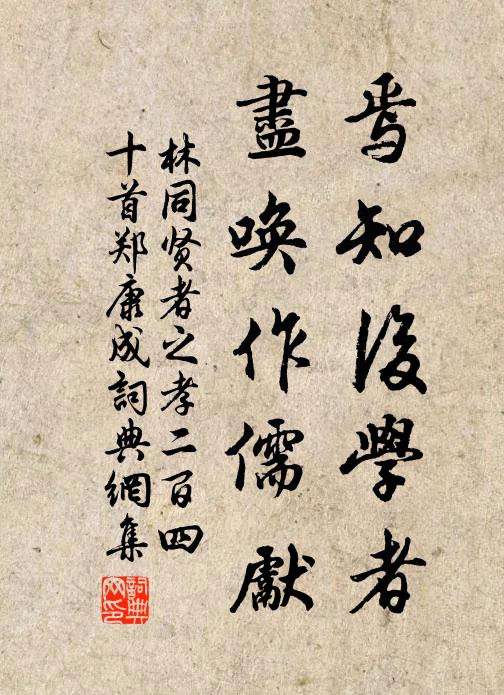 焉知後學者
盡喚作儒獻
林同贤者之孝二百四
十首郑康成詞典網集
詞典
网印